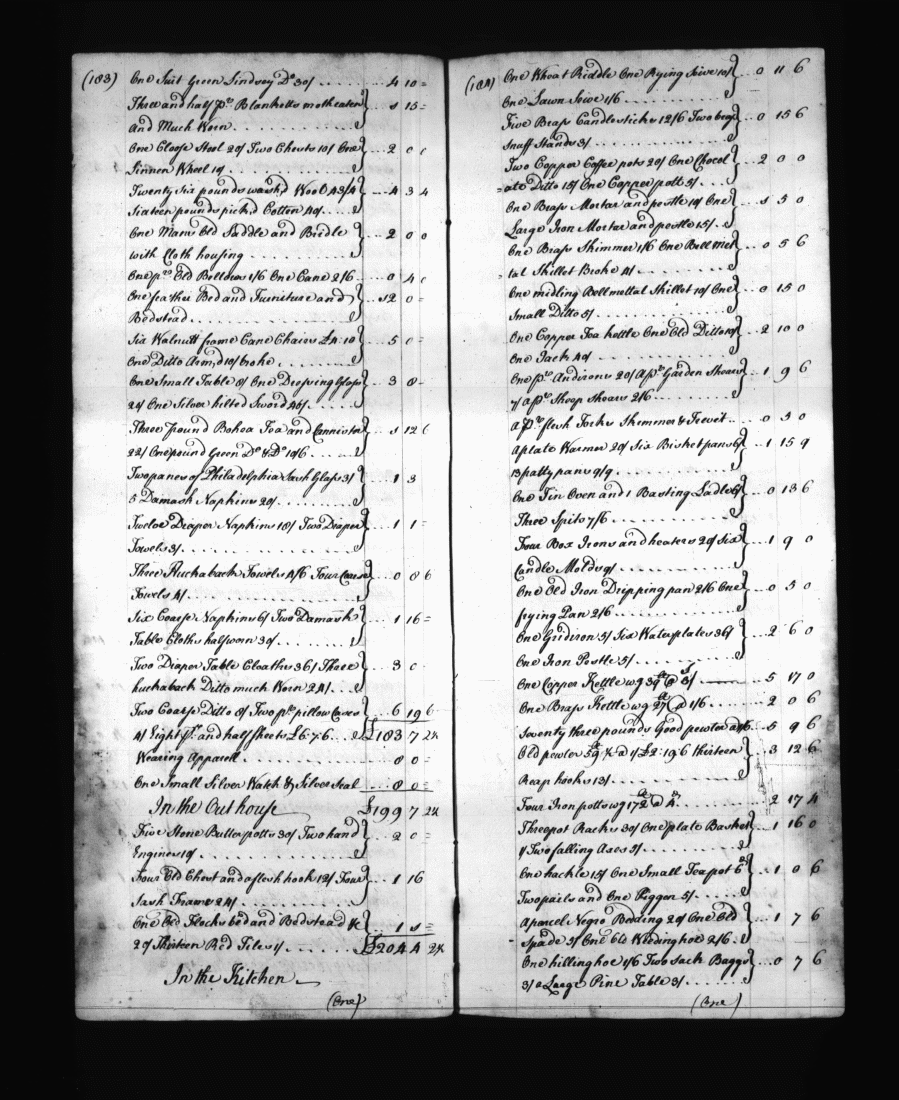 (183)
One Suit Green Lindsey Do 30/ ..... 4 10 =
Three and half prs Blanketts motheaten } ... 1 15 =
And Much Worn
One Cloose Stool 20/ Two Chests 10/ One } ... 2 0 0
Linnen Wheel 10/
Twenty Six pounds washd Wool 43/4 } ... 4 3 4
Sixteen pounds pickd Cotton 40/
One Mans Old Saddle and Bridle } ... 2 0 0
with Cloth housing
One pr Old Bellows 1/6 One Cane 2/6 ... 0 4 0
One feather Bed and Furniture and } ... 12 0 =
Bedstead
Six Walnutt frame Cane Chairs £4:10 } ... 5 0 =
One Ditto Armd 10/ broke
One Small Table 8/ One Dressing Glass } ... 3 8 =
20/ One Silver hilted Sword 40/
Three pound Bohea Tea and Cannister } ... 1 12 6
22/ One pound Green Do & Do 10/6
Two panes of Philadelphia Sash Glass 3/ } ... 1 3
5 Damask Napkins 20/
Twelve Diaper Napkins 18/ Two Diaper } ... 1 1 =
Towels 3/
Three Huckaback Towels 4/6 Four Coarse } ... 0 8 6
Towels 4/
Six Coarse Napkins 6/ Two Damask } ... 1 16 =
Table Cloths half worn 30/
Two Diaper Table Cloaths 36/ Three } ... 3 0
huckaback Ditto much Worn 24/
Two Coarse Ditto 8/ Two prs pillow Cases } ... 6 19 6
4/ Eight prs and half sheets £6:7:6 £183 7 2¼
Wearing Apparell ..... 8 0 =
One Small Silver Watch & Silver Seal 8 0 =
In the Out house £199 7 2¼
Five Stone Butter potts 30/ Two hand } ... 2 0 =
Engines 10/
Four Old Chest and a flesh hook 12/ Four } ... 1 16
Sash Frames 24/
One Old Flocks bed and Bedstead &c } ... 1 1 =
20/ Thirteen Red Tiles 1/ £204 4 2¼
In the Kitchen
(One)
(184)
One Wheat Riddle One Rying Seive 10/ } ... 0 11 6
One Lawn Seive 1/6
Five Brass Candlesticks 12/6 Two brass } ... 0 15 6
Snuff Stands 3/
Two Copper Coffee pots 20/ One Chocol } ... 2 0 0
=ate Ditto 15/ One Copper pott 5/
One Brass Mortar and pestle 10/ One } ... 1 5 0
Large Iron Mortar and pestle 15/
One Brass Skimmer 1/6 One Bell met } ... 0 5 6
=tal Skillet Broke 4/
One midling Bellmettal Skillet 10/ One } ... 0 15 0
Small Ditto 5/
One Copper Tea kettle One Old Ditto 10/ } ... 2 10 0
One Jack 40/
One pr Andirons 20/ A pr Garden Shears } ... 1 9 6
7/ a pr Sheep Shears 2/6
A pr flesh Forks Skimmer & Trevet ... 0 5 0
A plate Warmer 20/ Six Bisket pans 6/ } ... 1 15 9
13 patty pans 9/9
One Tin Oven and 1 Basting Ladle 6/ } ... 0 13 6
Three Spits 7/6
Four Box Irons and heaters 20/ Six } ... 1 9 0
Candle Molds 9/
One Old Iron Dripping pan 2/6 One } ... 0 5 0
frying Pan 2/6
One Gridiron 5/ Six Waterplates 36/ } ... 2 6 0
One Iron Pestle 5/
One Copper Kettle wg 39 lb @ 3/ ... 5 17 0
One Brass Kettle wg 27 lb @ 1/6 ... 2 0 6
Seventy three pounds Good pewter at 1/6 .. 5 9 6
Old pewter 59 ½ @ 1/ £2:19:6 thirteen } ... 3 12 6
Reap hooks 13/
Four Iron potts wg 172 lb @ 4d ... 2 17 4
Three pot Racks 30/ One plate Basket } ... 1 16 0
1/ Two falling Axes 5/
One hackle 15/ One Small Teapot 6d } ... 1 0 6
Two pails and One Piggen 5/
A parcel Negro Bedding 20/ One Old } ... 1 7 6
Spade 5/ One Old Weeding hoe 2/6
One hilling hoe 1/6 Two Sack Baggs } ... 0 7 6
3/ a Large Pine Table 3/
(One)